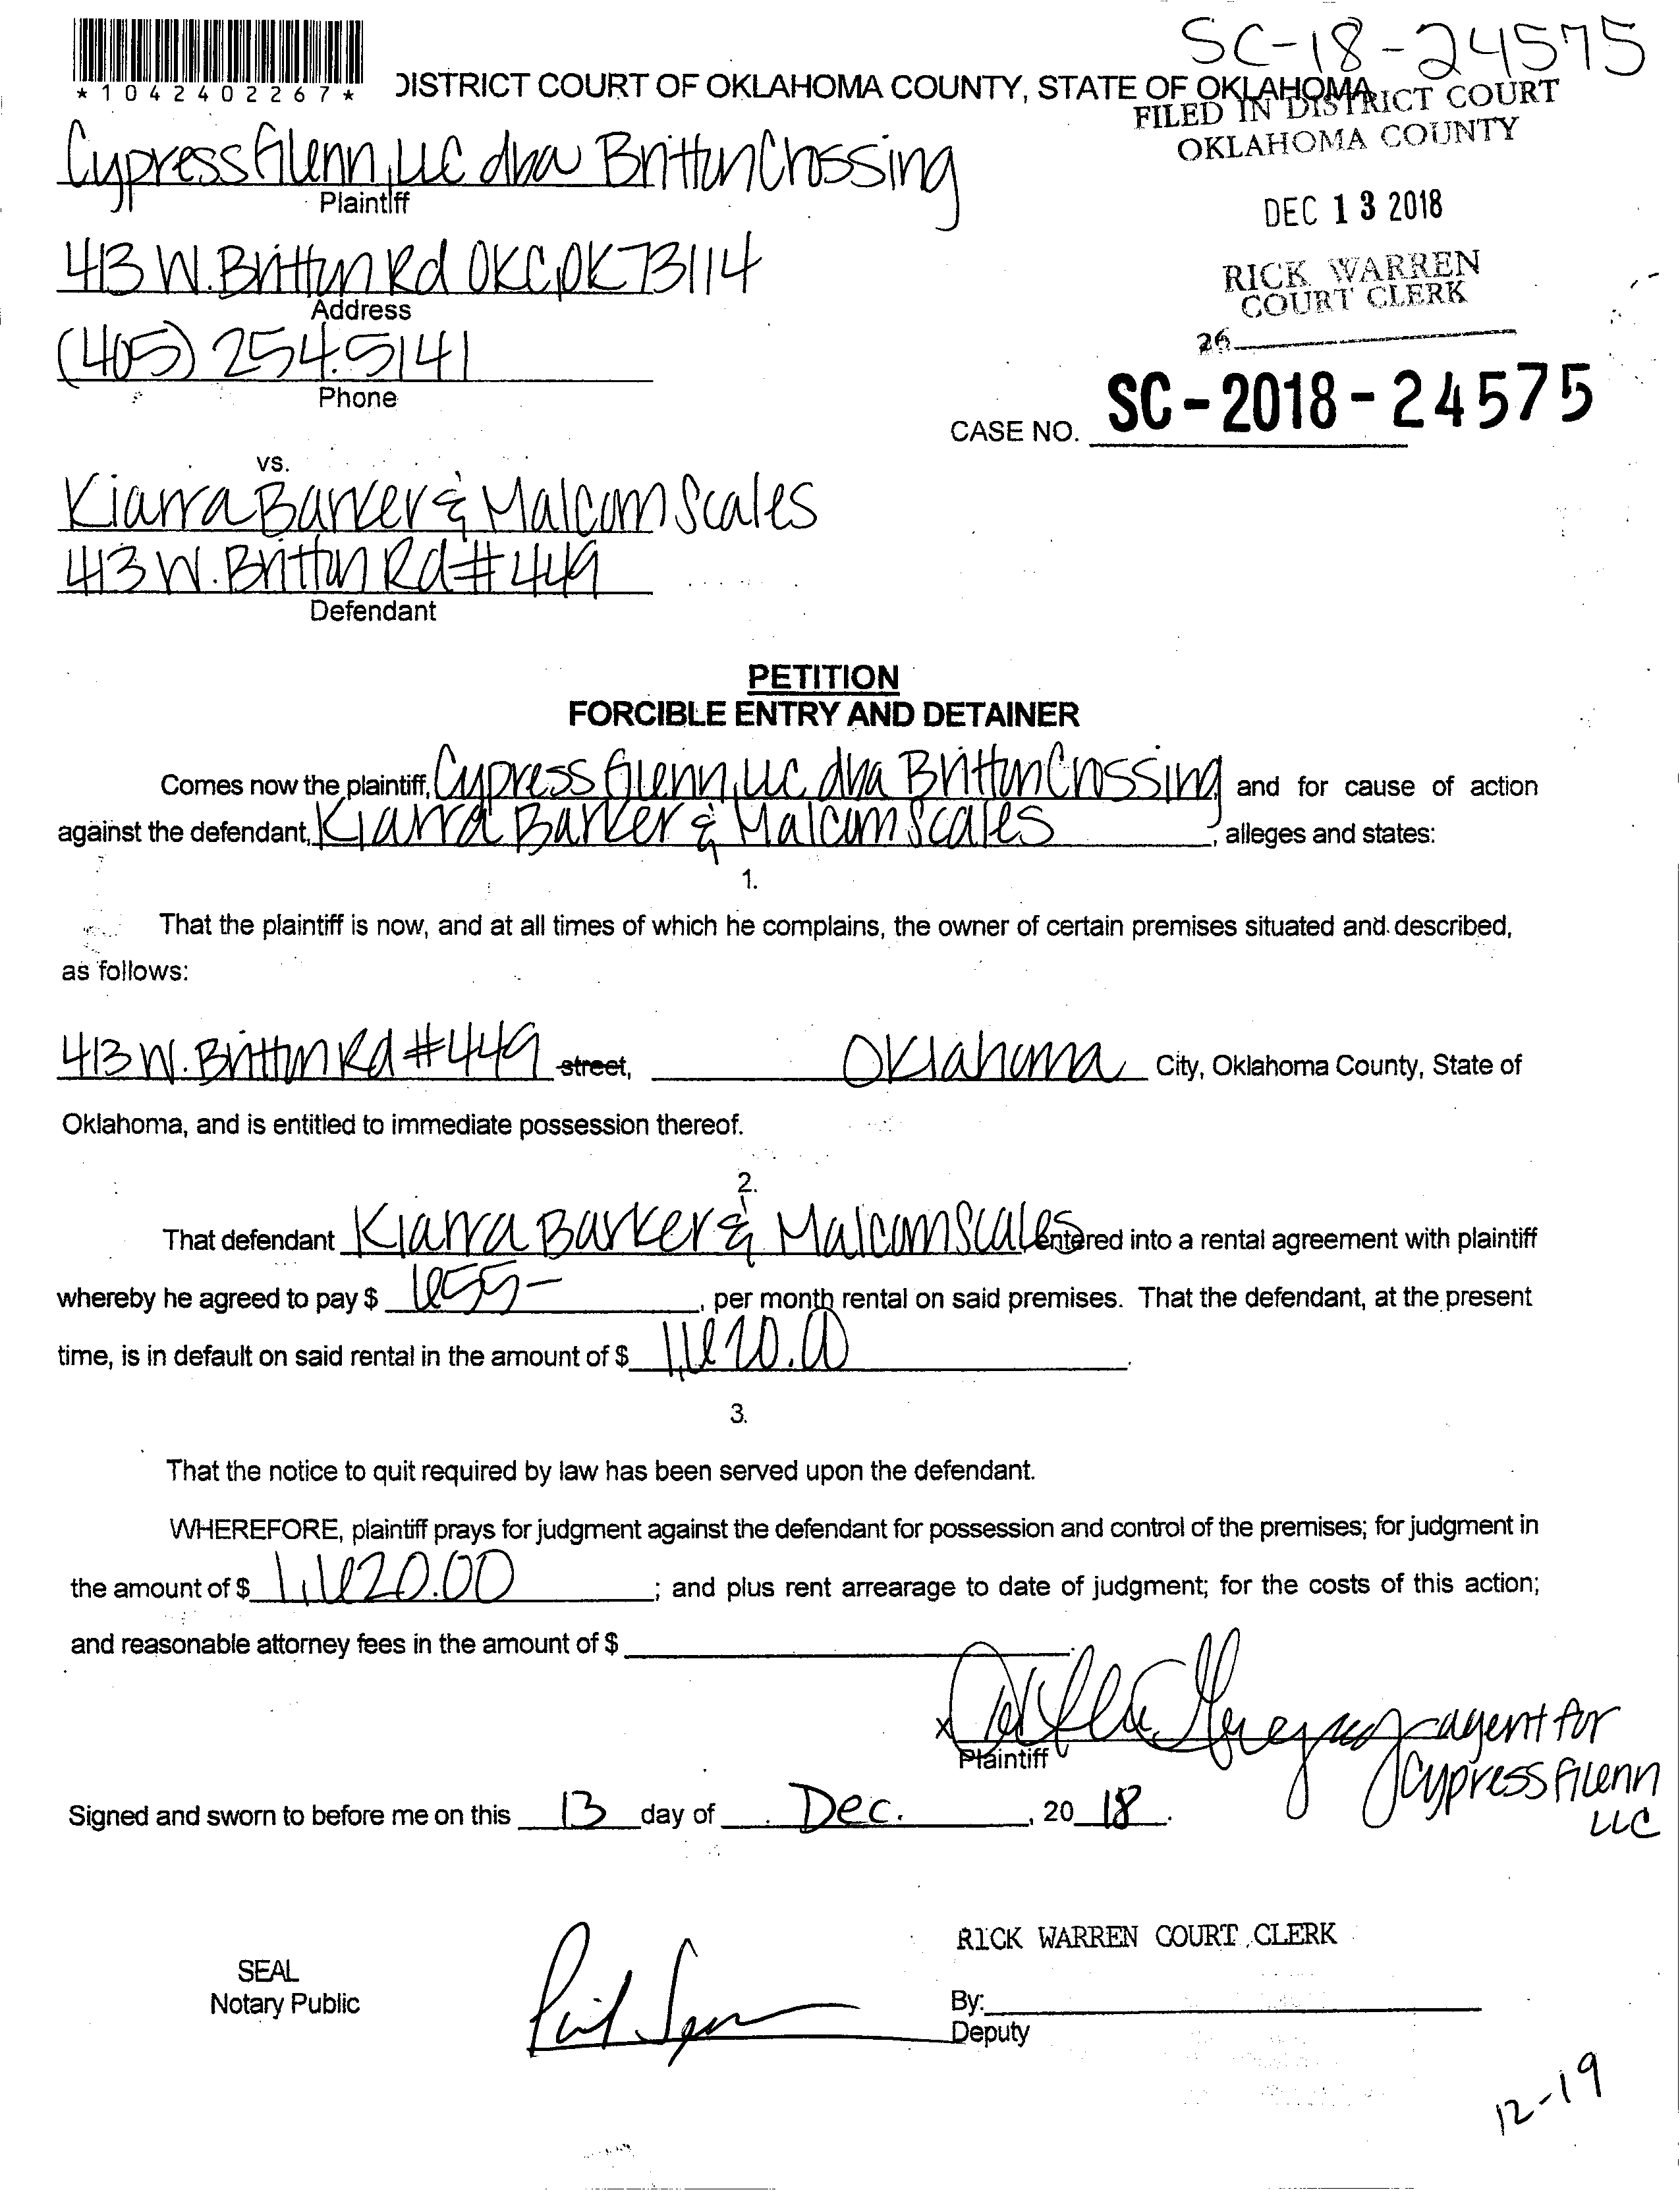 SC-18-24575
*1042402267*
DISTRICT COURT OF OKLAHOMA COUNTY, STATE OF OKLAHOMA
FILED IN DISTRICT COURT
OKLAHOMA COUNTY
Cypress Glenn, LLC dba Britton Crossing
Plaintiff
DEC 13 2018
413 W. Britton Rd OKC, OK 73114
Address
RICK WARREN
COURT CLERK
(405) 254.5141
Phone
26
CASE NO. SC-2018-24575
vs.
Kiarra Barker & Malcom Scales
413 W. Britton Rd #449
Defendant
PETITION
FORCIBLE ENTRY AND DETAINER
Comes now the plaintiff, Cypress Glenn, LLC dba Britton Crossing and for cause of action
against the defendant, Kiarra Barker & Malcom Scales, alleges and states:
1.
That the plaintiff is now, and at all times of which he complains, the owner of certain premises situated and described,
as follows:
413 W. Britton Rd #449 street, Oklahoma City, Oklahoma County, State of
Oklahoma, and is entitled to immediate possession thereof.
2.
That defendant Kiarra Barker & Malcom Scales entered into a rental agreement with plaintiff
whereby he agreed to pay $ 655-, per month rental on said premises. That the defendant, at the present
time, is in default on said rental in the amount of $ 1,620.00.
3.
That the notice to quit required by law has been served upon the defendant.
WHEREFORE, plaintiff prays for judgment against the defendant for possession and control of the premises; for judgment in
the amount of $ 1,620.00; and plus rent arrearage to date of judgment; for the costs of this action;
and reasonable attorney fees in the amount of $
x - agent for
Plaintiff
Cypress Glenn
LLC
Signed and sworn to before me on this 13 day of Dec., 2018.
RICK WARREN COURT CLERK
SEAL
Notary Public
By:
Deputy
12-19